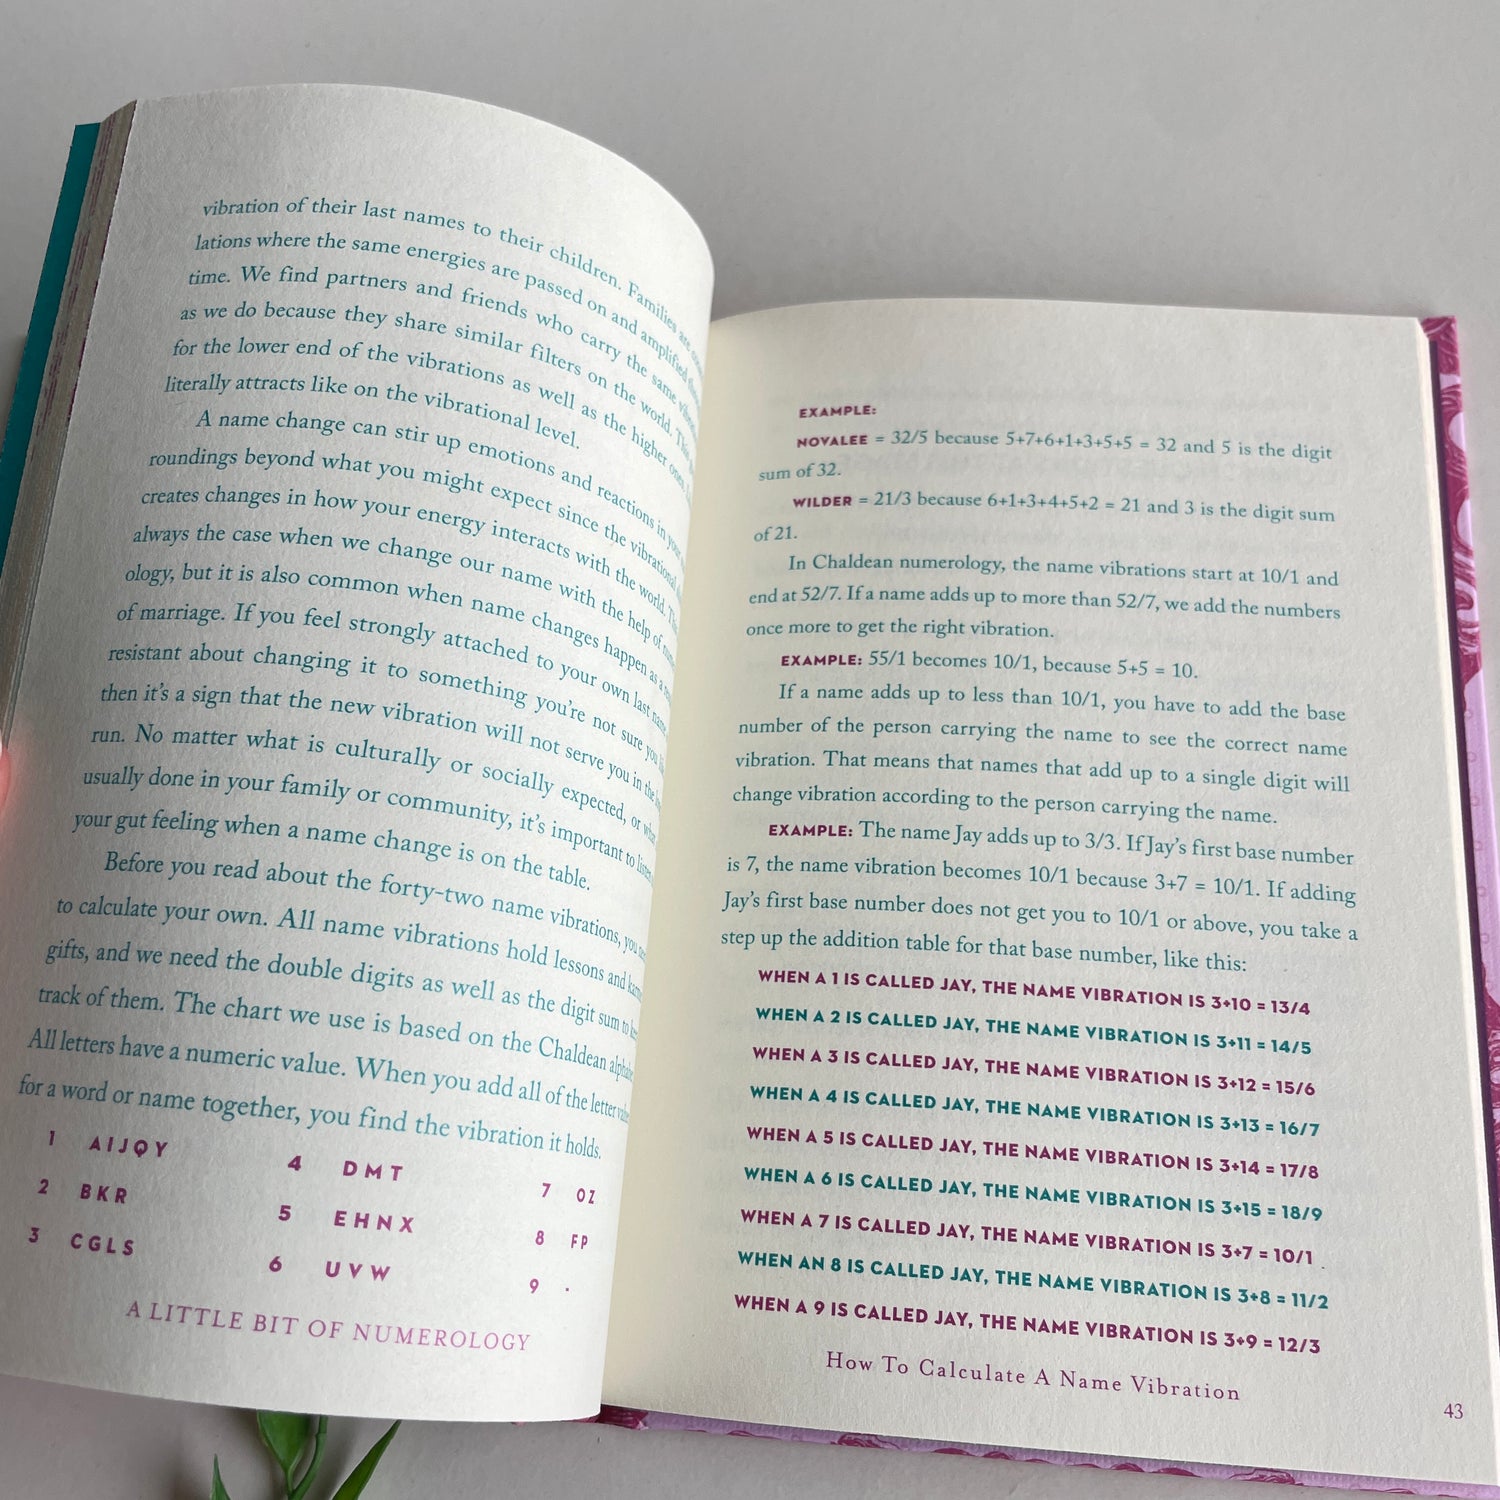 vibration of their last names to their children. Families are
lations where the same energies are passed on and amplified
time. We find partners and friends who carry the same
as we do because they share similar filters on the world. This
for the lower end of the vibrations as well as the higher ones.
literally attracts like on the vibrational level.
A name change can stir up emotions and reactions in your
roundings beyond what you might expect since the vibrational
creates changes in how your energy interacts with the world. This
always the case when we change our name with the help of
ology, but it is also common when name changes happen as a
of marriage. If you feel strongly attached to your own last name
resistant about changing it to something you're not sure you
then it's a sign that the new vibration will not serve you in the
run. No matter what is culturally or socially expected, or
usually done in your family or community, it's important to
your gut feeling when a name change is on the table.
Before you read about the forty-two name vibrations, you
to calculate your own. All name vibrations hold lessons and
gifts, and we need the double digits as well as the digit sum to
track of them. The chart we use is based on the Chaldean
All letters have a numeric value. When you add all of the letter
for a word or name together, you find the vibration it holds.
1 AIJQY 4 DMT 7 OZ
2 BKR 5 EHNX 8 FP
3 CGLS 6 UVW 9 .
A LITTLE BIT OF NUMEROLOGY
EXAMPLE:
NOVALEE = 32/5 because 5+7+6+1+3+5+5 = 32 and 5 is the digit
sum of 32.
WILDER = 21/3 because 6+1+3+4+5+2 = 21 and 3 is the digit sum
of 21.
In Chaldean numerology, the name vibrations start at 10/1 and
end at 52/7. If a name adds up to more than 52/7, we add the numbers
once more to get the right vibration.
EXAMPLE: 55/1 becomes 10/1, because 5+5 = 10.
If a name adds up to less than 10/1, you have to add the base
number of the person carrying the name to see the correct name
vibration. That means that names that add up to a single digit will
change vibration according to the person carrying the name.
EXAMPLE: The name Jay adds up to 3/3. If Jay's first base number
is 7, the name vibration becomes 10/1 because 3+7 = 10/1. If adding
Jay's first base number does not get you to 10/1 or above, you take a
step up the addition table for that base number, like this:
WHEN A 1 IS CALLED JAY, THE NAME VIBRATION IS 3+10 = 13/4
WHEN A 2 IS CALLED JAY, THE NAME VIBRATION IS 3+11 = 14/5
WHEN A 3 IS CALLED JAY, THE NAME VIBRATION IS 3+12 = 15/6
WHEN A 4 IS CALLED JAY, THE NAME VIBRATION IS 3+13 = 16/7
WHEN A 5 IS CALLED JAY, THE NAME VIBRATION IS 3+14 = 17/8
WHEN A 6 IS CALLED JAY, THE NAME VIBRATION IS 3+15 = 18/9
WHEN A 7 IS CALLED JAY, THE NAME VIBRATION IS 3+7 = 10/1
WHEN AN 8 IS CALLED JAY, THE NAME VIBRATION IS 3+8 = 11/2
WHEN A 9 IS CALLED JAY, THE NAME VIBRATION IS 3+9 = 12/3
How To Calculate A Name Vibration
43